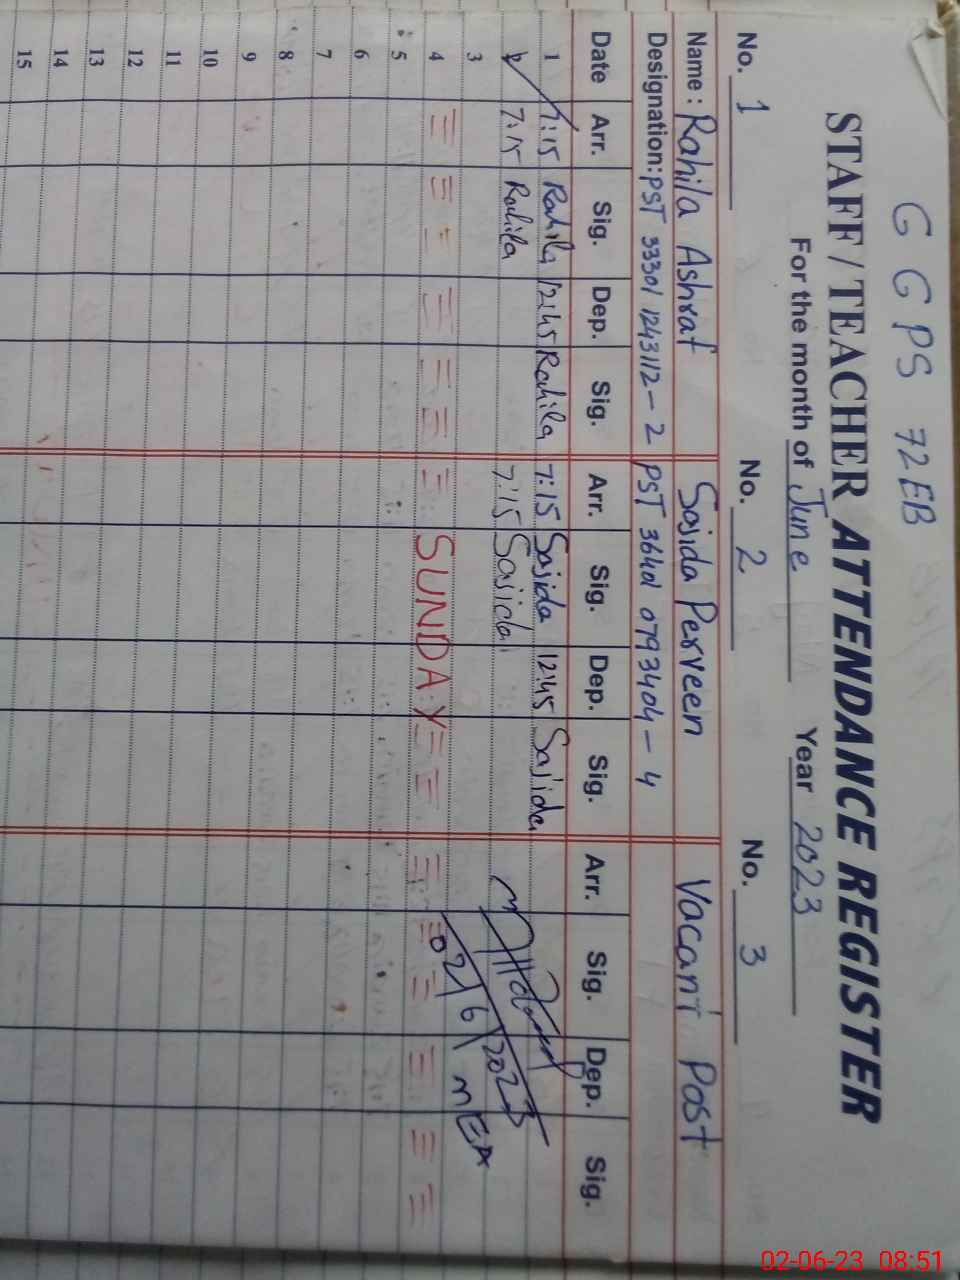 G G PS 72EB
STAFF / TEACHER ATTENDANCE REGISTER
For the month of June Year 2023
No. 1 No. 2 No. 3
Name: Rahila Ashraf Sajida Perveen Vacant Post
Designation: PST 33301 1243112-2 PST 36401 0793404-4
Date Arr. Sig. Dep. Sig. Arr. Sig. Dep. Sig. Arr. Sig. Dep. Sig.
1 7:15 Rahila 12:45 Rahila 7:15 Sajida 12:45 Sajida
2 7:15 Rahila 7:15 Sajida
3
02/6/2023
4 SUNDAY
5
6
7
8
9
10
11
12
13
14
15
02-06-23 08:51